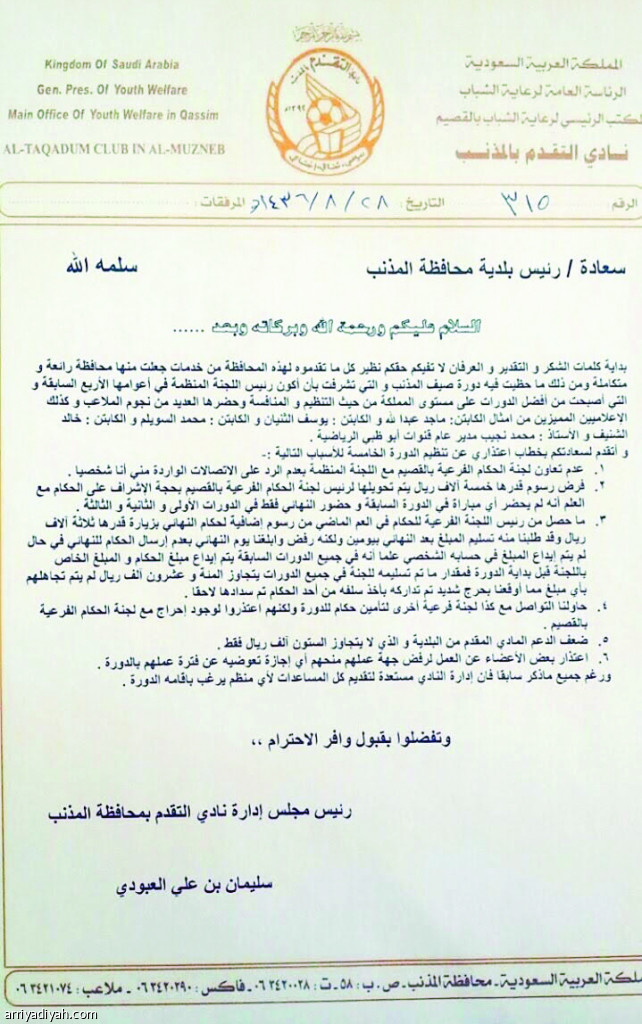 Kingdom Of Saudi Arabia
Gen. Pres. Of Youth Welfare
Main Office Of Youth Welfare in Qassim
AL-TAQADUM CLUB IN AL-MUZNEB
المملكة العربية السعودية
الرئاسة العامة لرعاية الشباب
لمكتب الرئيسي لرعاية الشباب بالقصيم
نادي التقدم بالمذنب
الرقم : ٣١٥ التاريخ : ٢٨ / ٨ / ١٤٣٦هـ المرفقات :
سعادة / رئيس بلدية محافظة المذنب سلمه الله
السلام عليكم ورحمة الله وبركاته وبعد ......
بداية كلمات الشكر و التقدير و العرفان لا تفيكم حقكم نظير كل ما تقدموه لهذه المحافظة من خدمات جعلت منها محافظة رائعة و
متكاملة ومن ذلك ما حظيت فيه دورة صيف المذنب و التي تشرفت بأن أكون رئيس اللجنة المنظمة في أعوامها الأربع السابقة و
التي أصبحت من أفضل الدورات على مستوى المملكة من حيث التنظيم و المنافسة وحضرها العديد من نجوم الملاعب و كذلك
الإعلاميين المميزين من امثال الكابتن: ماجد عبدا لله و الكابتن : يوسف الثنيان و الكابتن : محمد السويلم و الكابتن : خالد
الشنيف و الأستاذ : محمد نجيب مدير عام قنوات أبو ظبي الرياضية .
و أتقدم لسعادتكم بخطاب اعتذاري عن تنظيم الدورة الخامسة للأسباب التالية :-
١. عدم تعاون لجنة الحكام الفرعية بالقصيم مع اللجنة المنظمة بعدم الرد على الاتصالات الواردة مني أنا شخصيا .
٢. فرض رسوم قدرها خمسة آلاف ريال يتم تحويلها لرئيس لجنة الحكام الفرعية بالقصيم بحجة الإشراف على الحكام مع
العلم أنه لم يحضر أي مباراة في الدورة السابقة و حضور النهائي فقط في الدورات الأولى و الثانية و الثالثة .
٣. ما حصل من رئيس اللجنة الفرعية للحكام في العم الماضي من رسوم إضافية لحكام النهائي بزيارة قدرها ثلاثة آلاف
ريال وقد طلبنا منه تسليم المبلغ بعد النهائي بيومين ولكنه رفض وابلغنا يوم النهائي بعدم إرسال الحكام للنهائي في حال
لم يتم إيداع المبلغ في حسابه الشخصي علما أنه في جميع الدورات السابقة يتم إيداع مبلغ الحكام و المبلغ الخاص
باللجنة قبل بداية الدورة فمقدار ما تم تسليمه للجنة في جميع الدورات يتجاوز المئة و عشرون ألف ريال لم يتم تجاهلهم
بأي مبلغ مما أوقعنا بحرج شديد تم تداركه بأخذ سلفه من أحد الحكام تم سدادها لاحقا .
٤. حاولنا التواصل مع كذا لجنة فرعية أخرى لتأمين حكام للدورة ولكنهم اعتذروا لوجود إحراج مع لجنة الحكام الفرعية
بالقصيم .
٥. ضعف الدعم المادي المقدم من البلدية و الذي لا يتجاوز الستون ألف ريال فقط .
٦. اعتذار بعض الأعضاء عن العمل لرفض جهة عملهم منحهم أي إجازة تعوضيه عن فترة عملهم بالدورة .
ورغم جميع ماذكر سابقا فان إدارة النادي مستعدة لتقديم كل المساعدات لأي منظم يرغب بإقامه الدورة .
وتفضلوا بقبول وافر الاحترام ،،
رئيس مجلس إدارة نادي التقدم بمحافظة المذنب
سليمان بن علي العبودي
لمملكة العربية السعودية - محافظة المذنب - ص . ب : ٥٨ - ت : ٠٦٣٤٢٠٠٢٨ - فاكس : ٠٦٣٤٢٠٢٩٠ - ملاعب : ٠٦٣٤٢١٠٧٤
arriyadiyah.com